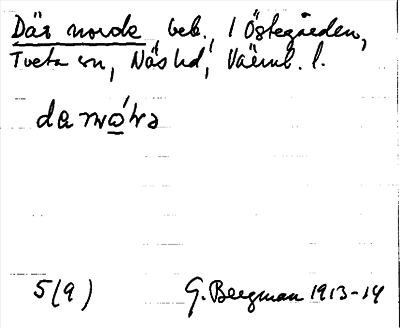 Där norde, beb., / Östegården,
Tveta sn, Näs hd, Värml. l.
5(9) G. Bergman 1913-14